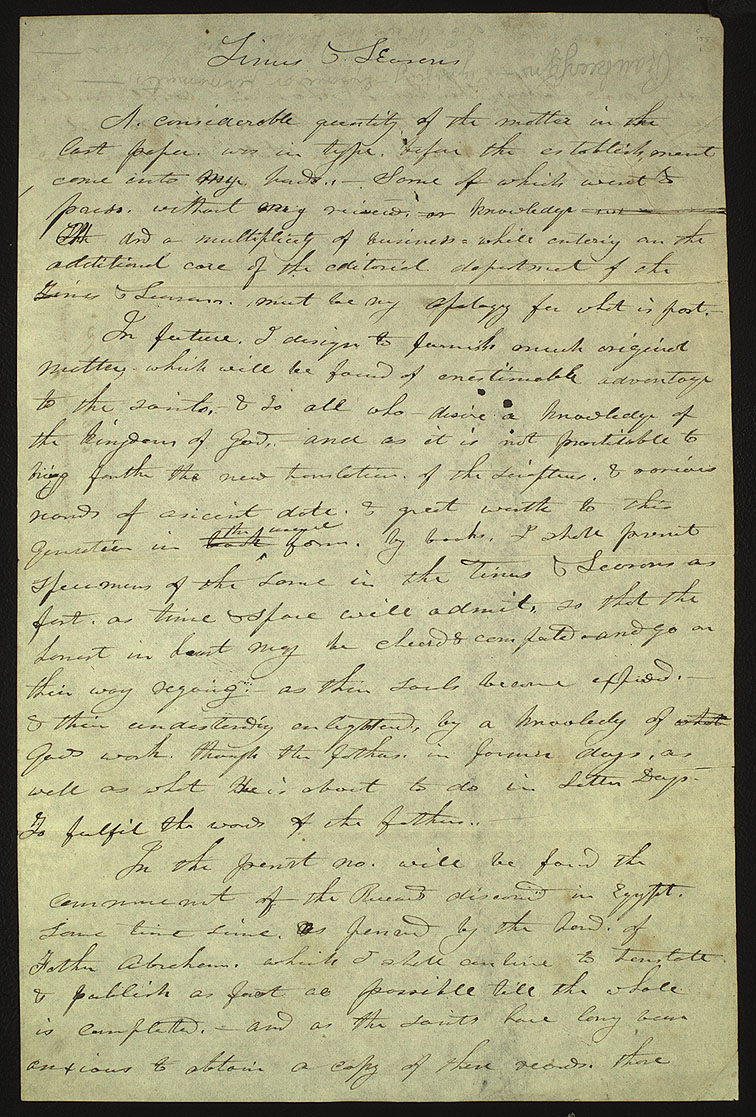 Times & Seasons
A. considerable quantity of the matter in the
last paper. was in type. before the establishment
came into my hands.,– Some of which went to
press. without my review. or knowledge
and a multiplicity of business = while entering on the
additional care of the editorial department of the
Times & Seasons. must be my apology for what is past.–
In future. I design to furnish much original
matter, which will be found of enestimable advantage
to the saints, & to all who – desire a knowledge of
the kingdom of God.– and as it is not practicable to
bring forthe the new translation. of the scriptures. & varioes
records of ancient date. & great worth to this
generation in book the usual form. by books. I shall prenit
specimens of the same in the Times & Seasons as
fast. as time & space will admit, so that the
honest in heart may be cheerd & comforted and go on
their way rejoing.– as their souls become expnded.–
& their undestandig enlightend, by a knowledg of what
Gods work. through the fathers. in former days, as
well as what He is about to do in Latter Days–
To fulfil the words of the fathers..–
In the prenst no. will be fond the
commencmet of the Records discoverd in Egypt.
some time since. as penned by the hand. of
Fathr Abraham. which I shall contine to translate
& publish as fast as possible till the whole
is completed.– and as the saints have long been
anxious to obtain a copy of these recods. those